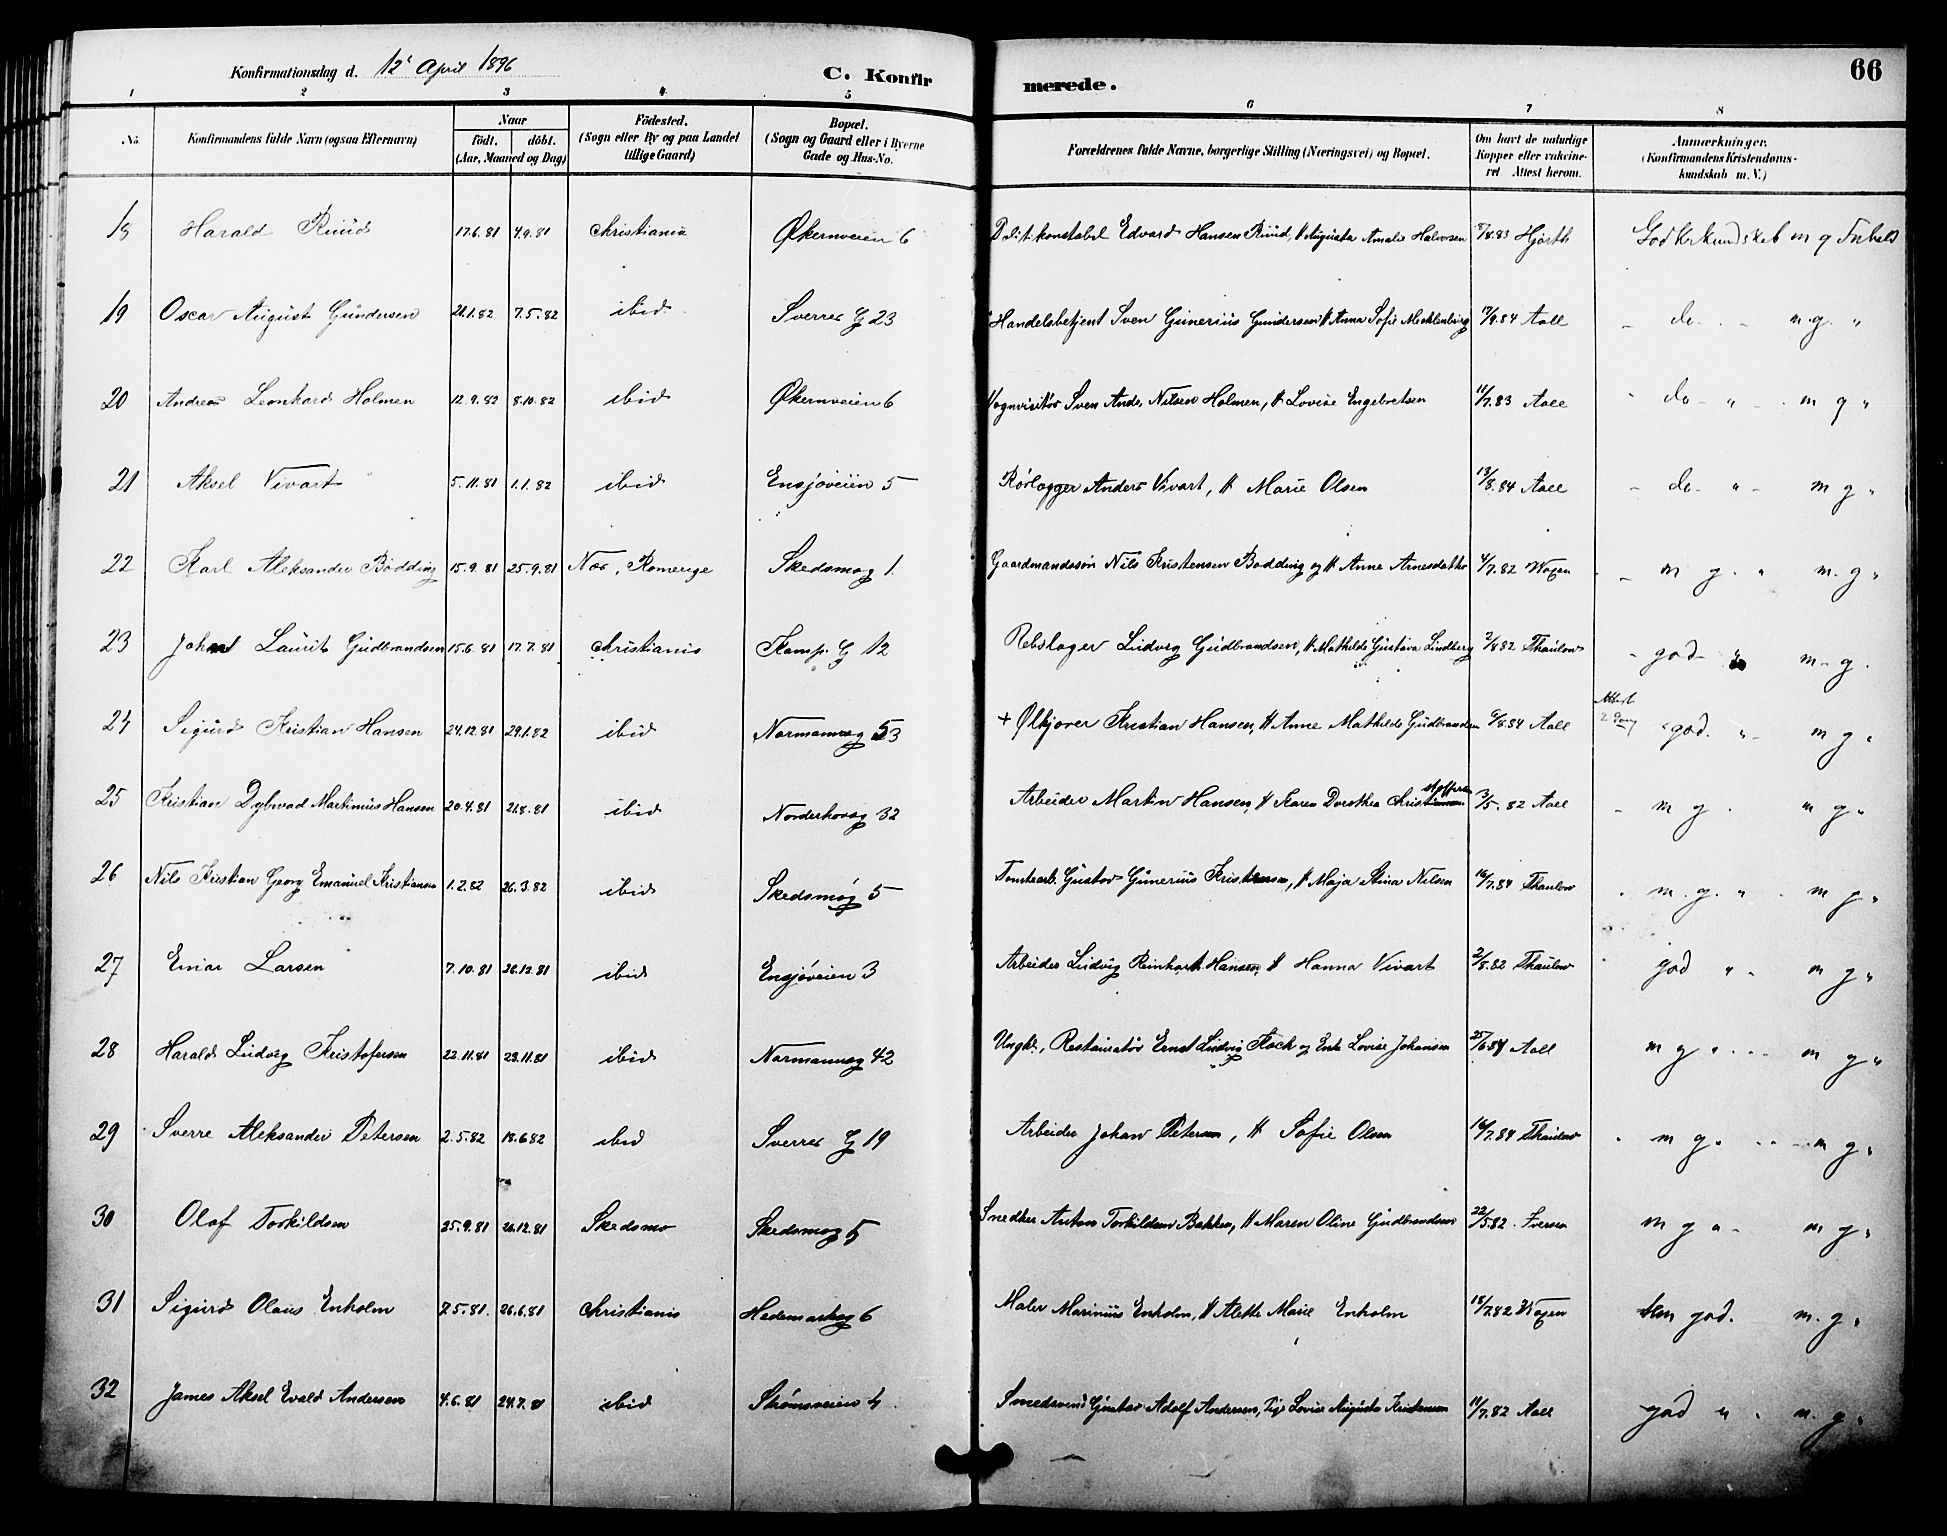 Konfirmationsdag d. 12' April 1896
C. Konfirmerede.
66
1 2 3 4 5 6 7 8
No. Konfirmandens fulde Navn (ogsaa Efternavn) Naar födt. döbt. (Aar, Maaned og Dag) Födested. (Sogn eller By og paa Landet tillige Gaard) Bopæl. (Sogn og Gaard eller i Byerne Gade og Hus-No. Forældrenes fulde Navne, borgerlige Stilling (Næringsvei) og Bopæl. Om havt de naturlige Kopper eller vakcineret Attest herom. Anmærkninger. (Konfirmandens Kristendomskundskab m. V.)
18 Harald Ruud 17.6.81 4.9.81 Christiania Økernveien 6 Politikonstabel Edvard Hansen Ruud, H Augusta Amalie Halvorsen 8/8.83 Hjorth God Krkundskab m g Forhold
19 Oscar August Gundersen 21.1.82 7.5.82 ibid Sverres G 23 Handelsbetjent Sven Gunerius Gundersen H Anna Sofie Mecklenburg 17/9.84 Aall - do. - m.g. "
20 Andreas Leonhard Holmen 12.9.82 8.10.82 ibid Økernveien 6 Vognvisitør Sven Andr. Nilsen Holmen, H Lovise Engebretsen 11/7.83 Aall do - " - m g "
21 Aksel Vivart 5.11.81 1.1.82 ibid Ensjøveien 5 Rørlægger Anders Vivart, H Marie Olsen 13/8.84 Aall - do - " - m g "
22 Karl Aleksander Bodding 15.9.81 25.9.81 Næs, Romerige Skedsmog 1. Gaardmandssøn Nils Kristensen Bodding og H Anne Arnesdatter 4/7.82 Wogen - m g. " m. g "
23 Johan Laurits Gudbrandsen 15.6.81 17.7.81 Christiania Kamp. G 12 Rebslager Ludvig Gudbrandsen, H Mathilde Gustava Lindberg 2/8.82 Thaulow - god - " m - g.
24 Sigurd Kristian Hansen 24.12.81 29.1.82 ibid Normannsg 53 + Ølkjører Kristian Hansen, H Anne Mathilde Gudbrandsen 9/8.84 Aall Attest 2 Gang god. " - m g "
25 Kristian Dybwad Martinius Hansen 20.4.81 21.8.81 ibid Norderhovsg 32 Arbeider Martin Hansen, H Karen Dorothea Christoffersen 3/5.82 Aall - m g . m g "
26 Nils Kristian Georg Emanuel Kristiansen 1.2.82 26.3.82 ibid Skedsmog 5 Tomtearb. Gustav Gunerius Kristiansen, H Maja Stina Nilsen 16/7.84 Thaulow " m. g. " . m g "
27 Einar Larsen 7.10.81 26.12.81 ibid Ensjøveien 3 Arbeider Ludvig Reinhart Hansen, H Hanna Vivart 2/8.82 Thaulow god " - m g "
28 Harald Ludvig Kristofersen 22.11.81 29.11.81 ibid Normannsg 42 Ungk., Restauratør Ernst Ludvig Kock og Enke Lovise Johansen 25/6.84 Aall m g " - - m g "
29 Sverre Aleksander Petersen 2.5.82 18.6.82 ibid Sverres G 19 Arbeider Johan Petersen, H Sofie Olsen 16/7.84 Thaulow " m g " - - m g "
30 Olaf Torkildsen 25.9.81 26.12.81 Skedsmo Skedsmog 5 Snedker Anton Torkildsen Bakken, H Maren Oline Gudbrandsen 22/5.82 Iversen m g " - m g "
31 Sigurd Olaus Enholm 7.5.81. 26.6.81 Christiania Hedemarksg 6 Maler Marinius Enholm, H Alette Marie Enholm 18/7.82 Wogen god. m. g "
32 James Aksel Evald Andersen 4.6.81 24.7.81 ibid Strømsveien 4 Smedsvend Gustav Adolf Andersen, Pige Lovise Augusta Kristensen 11/7.82 Aall god " " m. g "